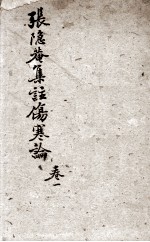 張隐菴集註傷寒論
卷一